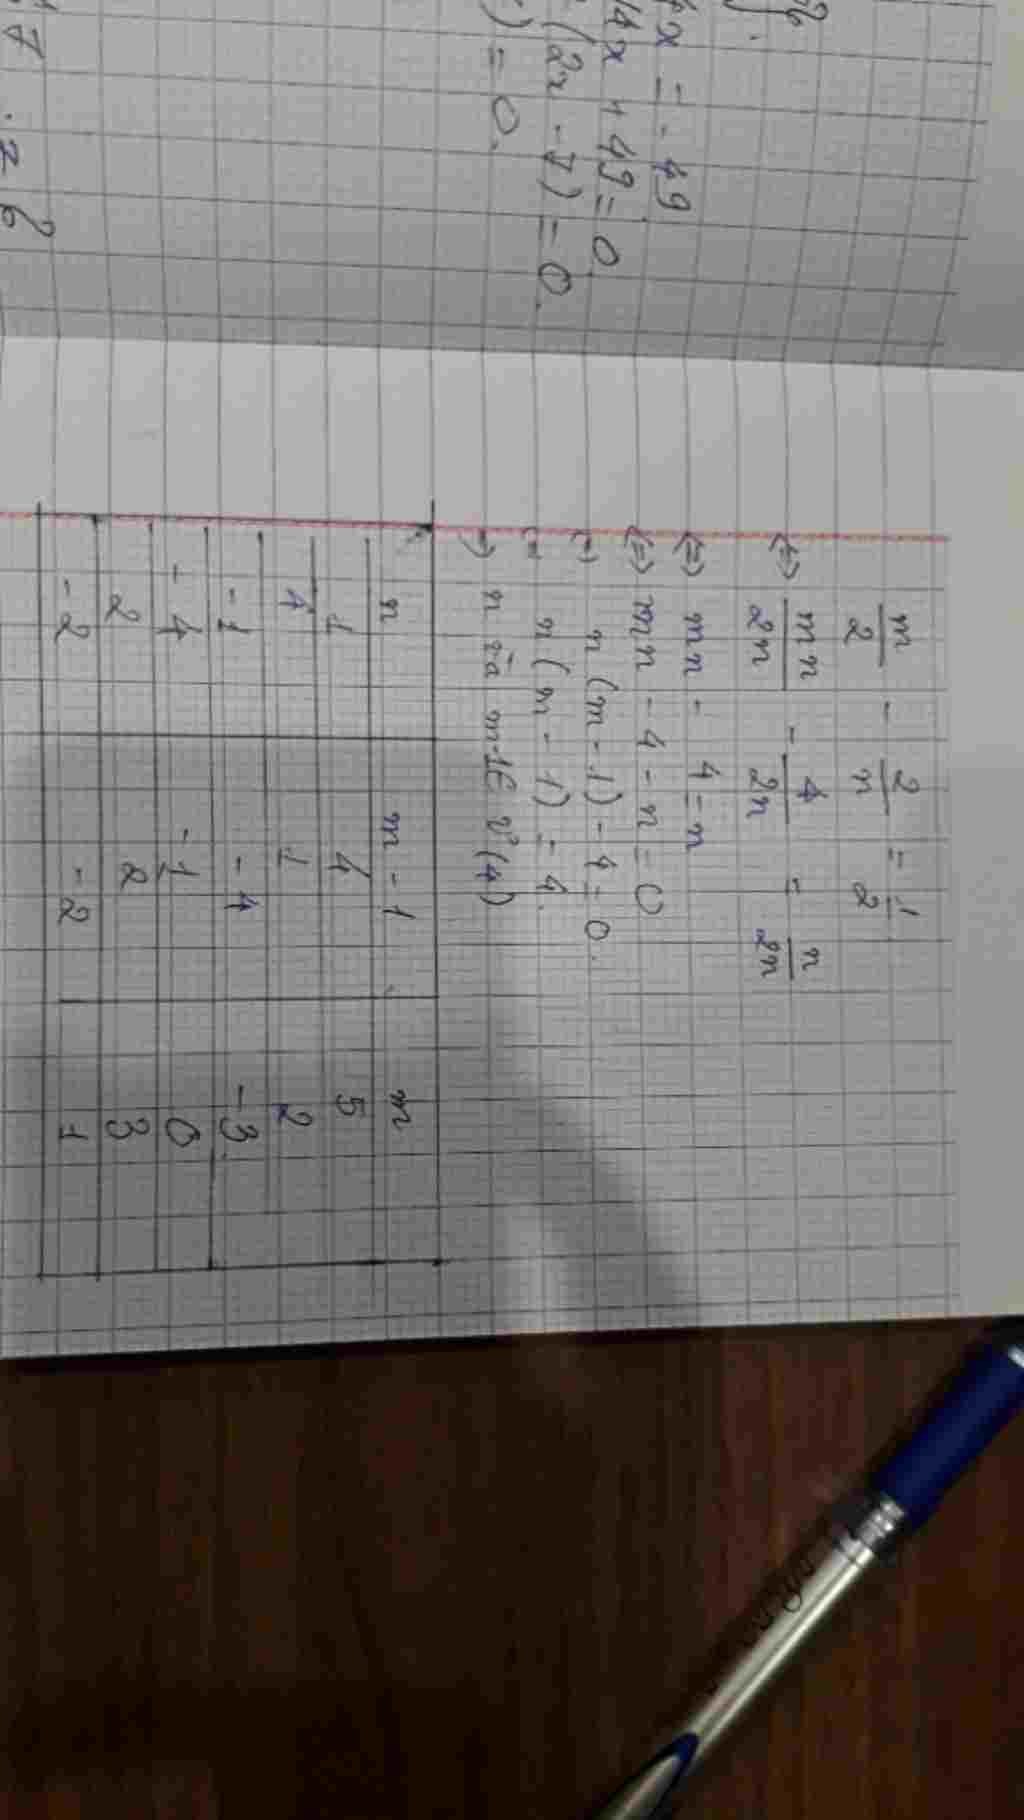 4x = -49
14x + 49 = 0
(2x - 7) = 0.
) = 0.
m/2 - 2/n = 1/2
<=> mn/2n - 4/2n = n/2n
<=> mn - 4 = n
<=> mn - 4 - n = 0
n(m-1) - 4 = 0.
n(m-1) = 4.
n và m-1 ∈ Ư(4)
n | m-1 | m
1 | 4 | 5
4 | 1 | 2
-1 | -4 | -3
-4 | -1 | 0
2 | 2 | 3
-2 | -2 | -1